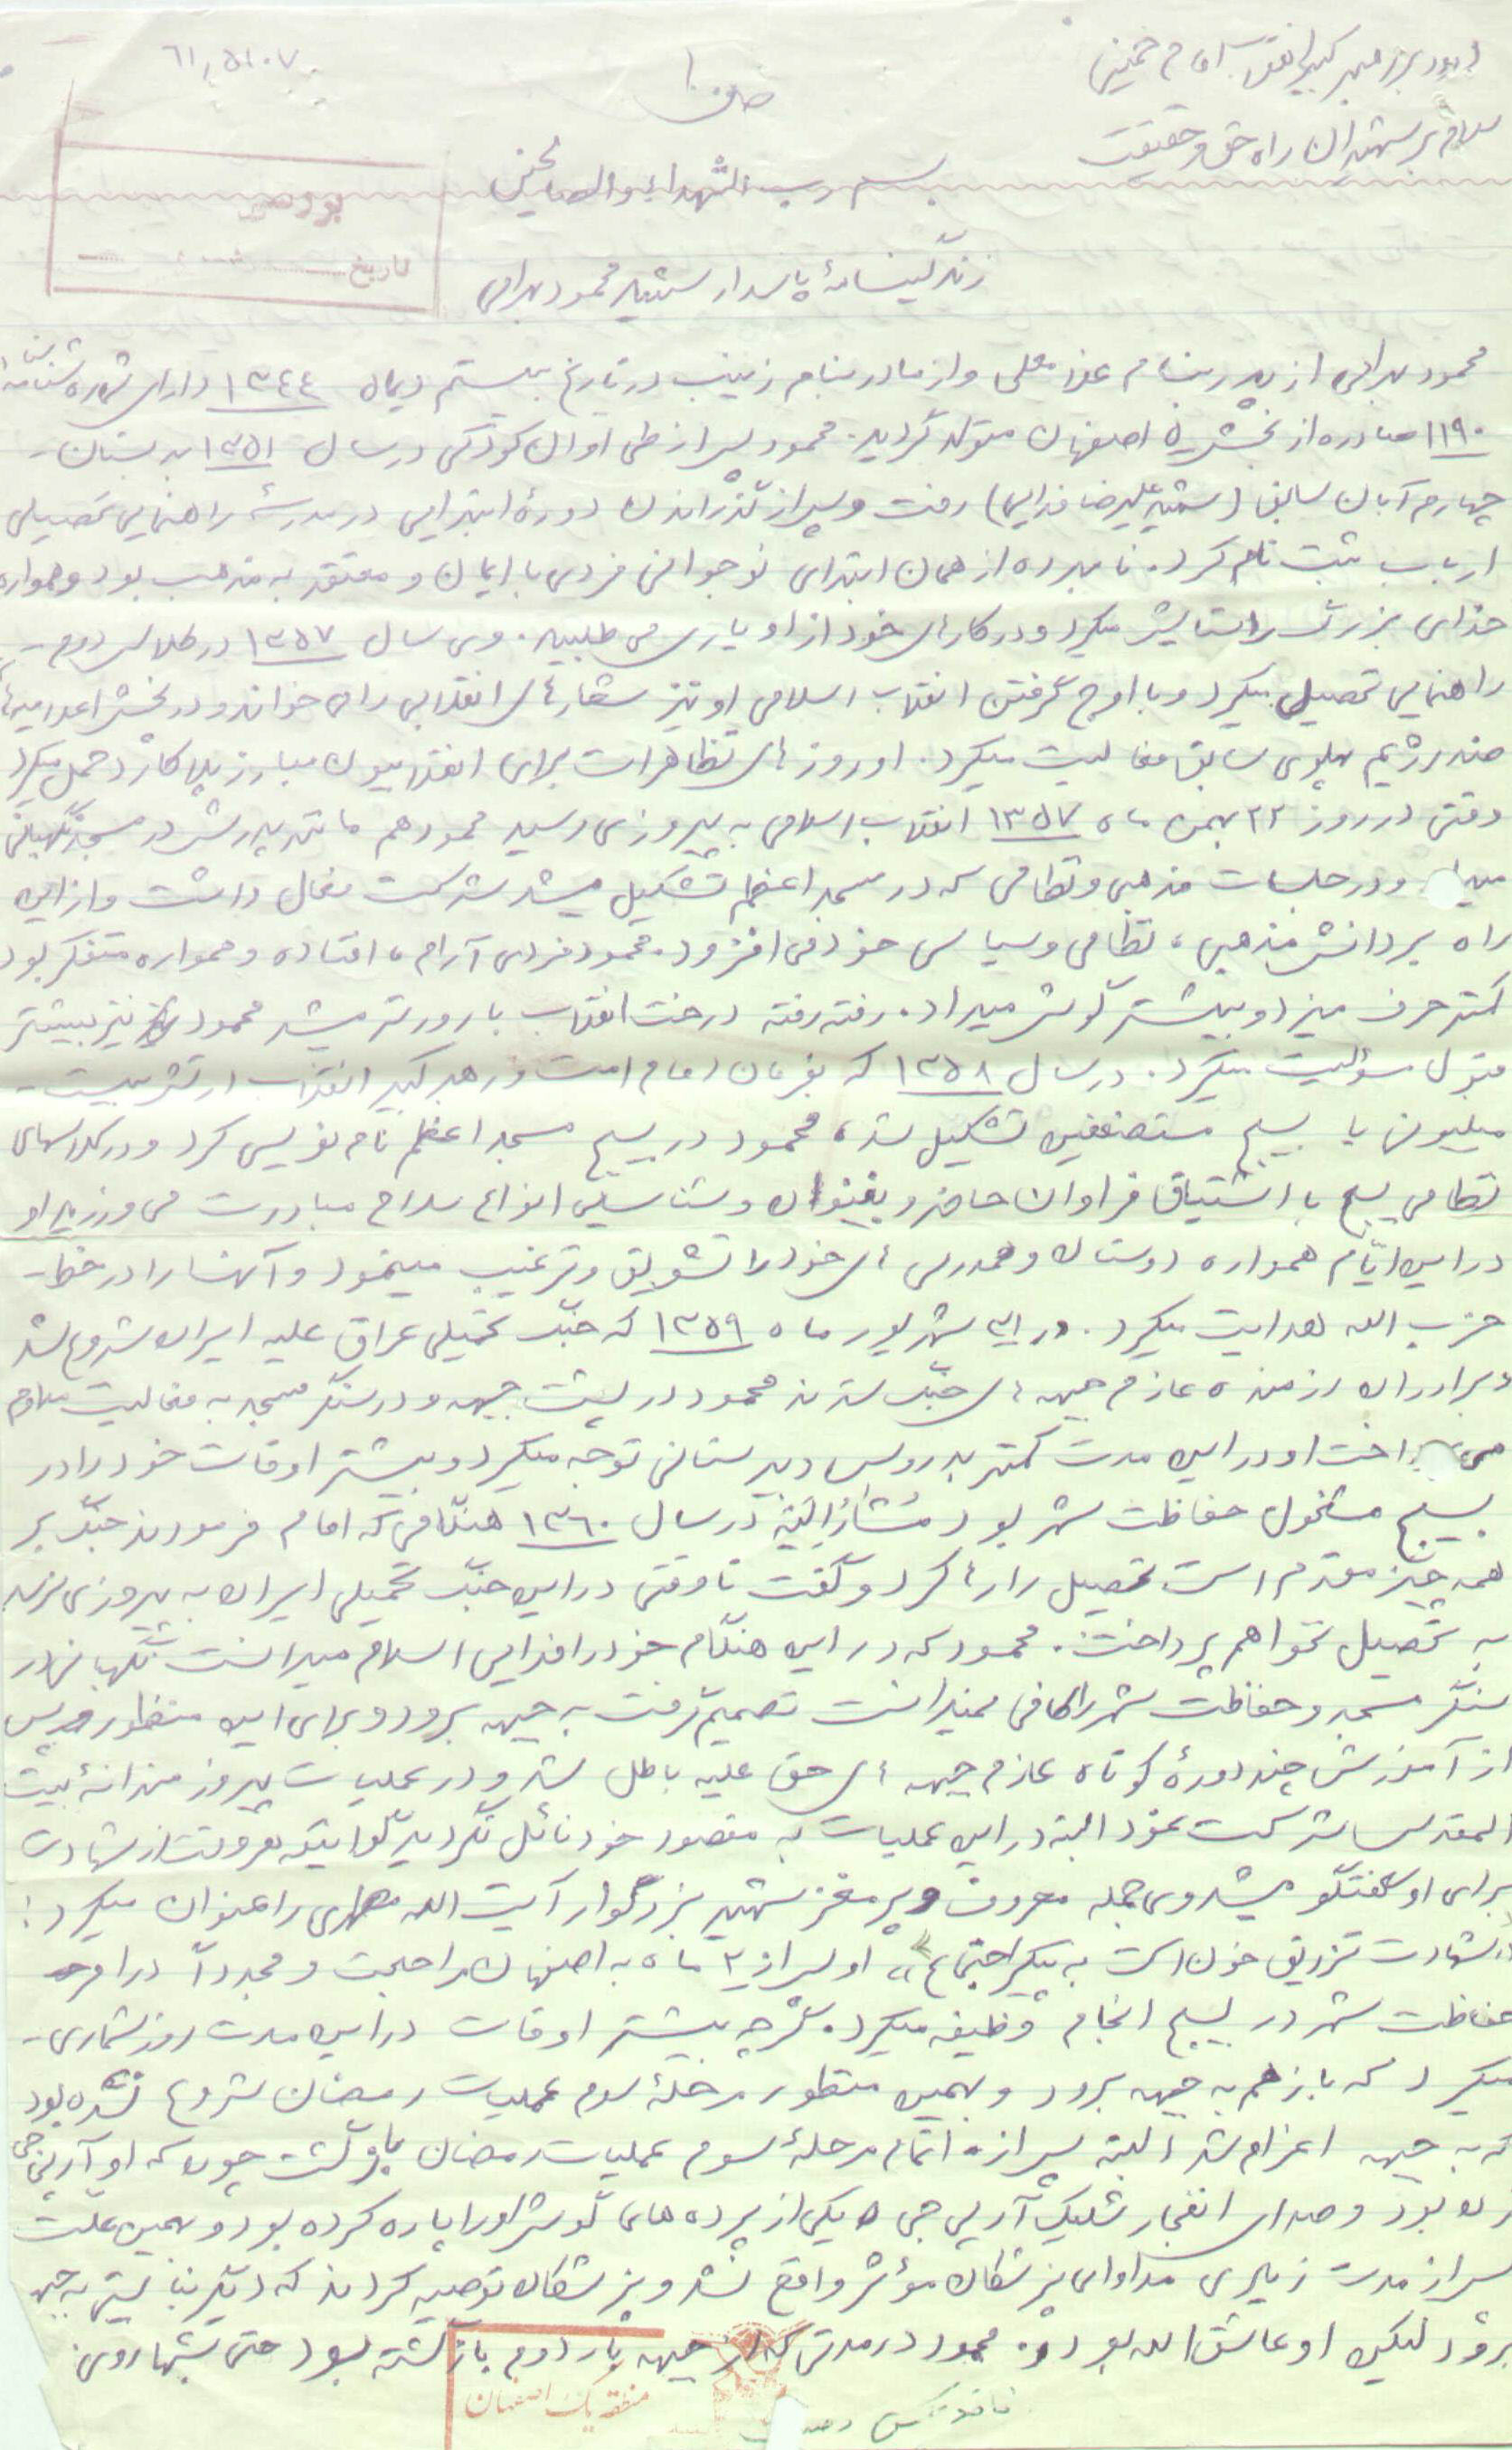 درود بر رهبر کبیر انقلاب امام خمینی
سلام بر شهیدان راه حق و حقیقت
بسم رب الشهداء والصالحین
زندگینامهٔ پاسدار شهید محمود بهرامی
تاریخ
محمود بهرامی از پدر بنام غلامعلی و از مادر بنام زینب در تاریخ بیستم دیماه ۱۳۴۴ دارای شماره شناسنامه
۱۱۹۰ صادره از بخش اصفهان متولد گردید. محمود پس از طی اوان کودکی در سال ۱۳۵۱ به دبستان-
چهارم آبان سابق (شهید علیرضا فدایی) رفت و پس از گذراندن دورهٔ ابتدایی در مدرسهٔ راهنمایی تحصیلی
ارباب ثبت نام کرد. نامبرده از همان ابتدای نوجوانی فردی با ایمان و معتقد به مذهب بود و همواره
خدای بزرگ را ستایش میکرد و در کارهای خود از او یاری می طلبید. وی سال ۱۳۵۷ در کلاس دوم-
راهنمایی تحصیل میکرد و با اوج گرفتن انقلاب اسلامی او نیز شعارهای انقلابی را می خواند و در پخش اعلامیه‌های
ضد رژیم پهلوی سابق فعالیت میکرد. او روزهای تظاهرات برای انقلابیون مبارز پلاکارد حمل میکرد
وقتی در روز ۲۲ بهمن ماه ۱۳۵۷ انقلاب اسلامی به پیروزی رسید محمود هم مانند پدرش در مسجد نگهبانی
میداد و در جلسات مذهبی و نظامی که در مسجد اعظم تشکیل میشد شرکت فعال داشت و از این
راه بر دانش مذهبی، نظامی و سیاسی خود می افزود. محمود فردی آرام، افتاده و همواره متفکر بود
کمتر حرف میزد و بیشتر گوش میداد. رفته رفته درخت انقلاب بارورتر میشد محمود نیز بیشتر
قبول مسؤلیت میکرد. در سال ۱۳۵۸ که بفرمان امام امت و رهبر کبیر انقلاب ارتش بیست-
میلیونی یا بسیج مستضعفین تشکیل شد، محمود در بسیج مسجد اعظم نام نویسی کرد و در کلاسهای
نظامی بسیج با اشتیاق فراوان حاضر و بفنون و شناسایی انواع سلاح مبادرت می ورزید او
در این ایّام همواره دوستان و همدرسی های خود را تشویق و ترغیب مینمود و آنها را در خط-
حزب الله هدایت میکرد. در ۳۱ شهریور ماه ۱۳۵۹ که جنگ تحمیلی عراق علیه ایران شروع شد
و برادران رزمنده عازم جبهه های جنگ شدند محمود در پشت جبهه و در سنگر مسجد به فعالیت مداوم
می پرداخت او در این مدت کمتر به دروس دبیرستانی توجه میکرد و بیشتر اوقات خود را در
بسیج مشغول حفاظت شهر بود مشارالیه در سال ۱۳۶۰ هنگامی که امام فرمودند جنگ بر
همه چیز مقدم است تحصیل را رها کرد و گفت تا وقتی در این جنگ تحمیلی ایران به پیروزی نرسد
به تحصیل نخواهم پرداخت. محمود که در این هنگام خود را فدایی اسلام میدانست نگهبانی در
سنگر مسجد و حفاظت شهر را کافی نمیدانست تصمیم گرفت به جبهه برود و برای این منظور و پس
از آموزش چند دورهٔ کوتاه عازم جبهه های حق علیه باطل شد و در عملیات پیروزمندانهٔ بیت
المقدس شرکت نمود البته در این عملیات به مقصود خود نائل نگردید گو اینکه هر وقت از شهادت
برای او گفتگو میشد وی جمله معروف و پر مغز شهید بزرگوار آیت الله مطهری را عنوان میکرد:
«شهادت تزریق خون است به پیکر اجتماع» او پس از ۳ ماه به اصفهان مراجعت و مجدداً در امر
حفاظت شهر در بسیج انجام وظیفه میکرد. گرچه بیشتر اوقات در این مدت روزشماری-
میکرد که باز هم به جبهه برود و بهمین منظور مرحلهٔ سوم عملیات رمضان شروع نشده بود
که به جبهه اعزام شد البته پس از اتمام مرحلهٔ سوم عملیات رمضان بازگشت چون که او آرپی جی
زن بود و صدای انفجار شلیک آرپی جی یکی از پرده های گوش او را پاره کرده بود و بهمین علت
پس از مدت زیادی مداوای پزشکان مؤثر واقع نشد و پزشکان توصیه کردند که دیگر نبایستی به جبهه
برود لیکن او عاشق الله بود. محمود در مدتی که از جبهه بار دوم بازگشته بود حتی شبها روی
منطقه یک اصفهان